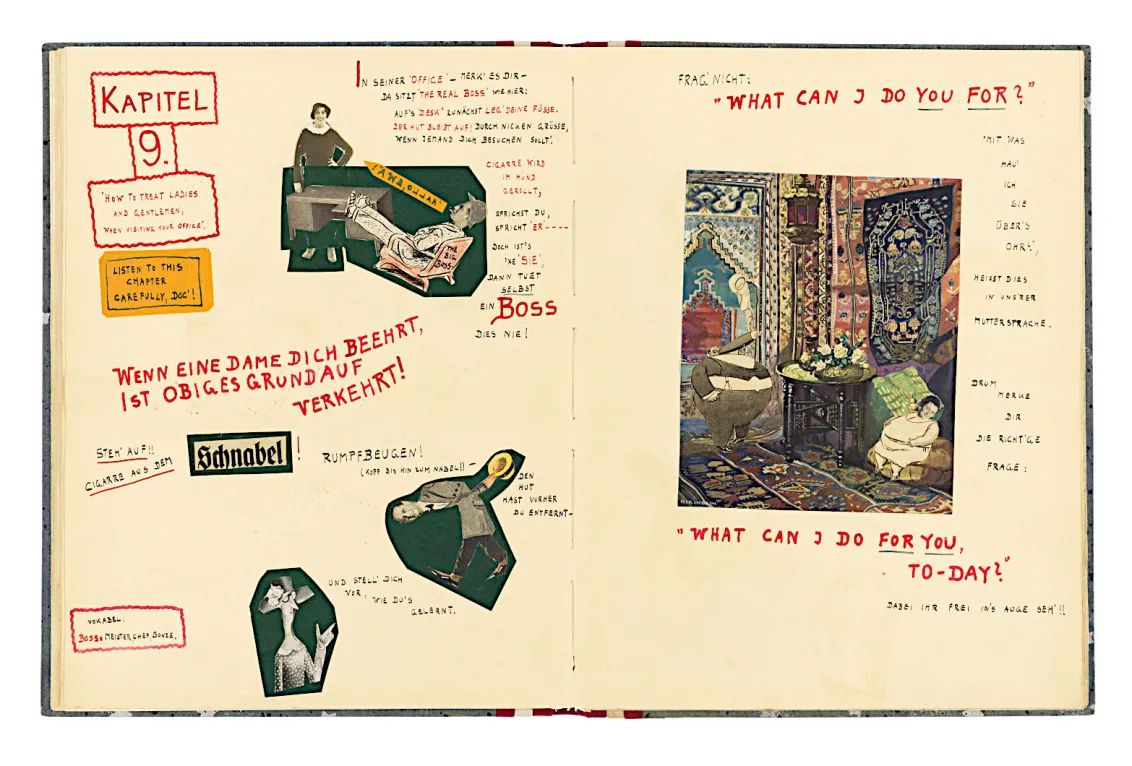 KAPITEL
9.
"HOW TO TREAT LADIES
AND GENTLEMEN,
WHEN VISITING YOUR OFFICE".
LISTEN TO THIS
CHAPTER
CAREFULLY, DOC'!
IN SEINER "OFFICE" – MERK' ES DIR –
DA SITZT "THE REAL BOSS" WIE HIER:
AUF'S "DESK" ZUNÄCHST LEG' DEINE FÜSSE.
DER HUT BLEIBT AUF! DURCH NICKEN GRÜSSE,
WENN JEMAND DICH BESUCHEN SOLLT'.
CIGARRE WIRD
IM MUND
GEROLLT,
SPRICHST DU,
SPRICHT "ER" ----
DOCH IST'S
'NE "SIE",
DANN TUET
SELBST
EIN BOSS
DIES NIE!
THE
BIG
BOSS
WENN EINE DAME DICH BEEHRT,
IST OBIGES GRUNDAUF
VERKEHRT!
STEH' AUF!!
CIGARRE AUS DEM
Schnabel!
RUMPFBEUGEN!
(KOPF BIS HIN ZUM NABEL!) –
DEN
HUT
HAST VORHER
DU ENTFERNT –
UND STELL' DICH
VOR, WIE DU'S
GELERNT.
VOKABEL:
BOSS = MEISTER, CHEF, BONZE.
FRAG' NICHT:
"WHAT CAN I DO YOU FOR?"
"MIT WAS
HAU'
ICH
SIE
ÜBER'S
OHR?",
HEISST DIES
IN UNS'RER
MUTTERSPRACHE.
DRUM
MERKE
DIR
DIE RICHT'GE
FRAGE:
"WHAT CAN I DO FOR YOU,
TO-DAY?"
DABEI IHR FREI IN'S AUGE SEH'!!